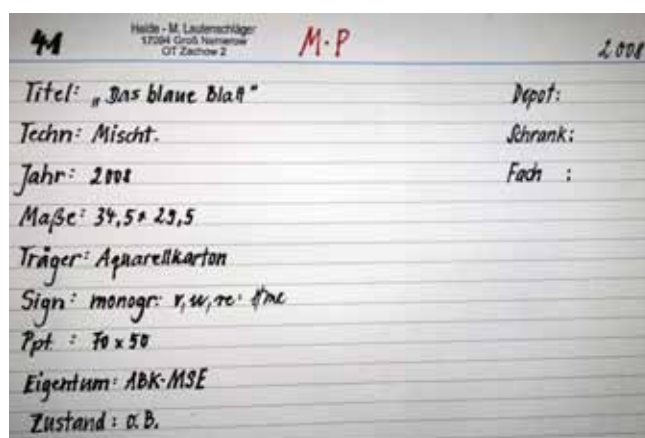 41 Heide - M. Lautenschläger M.P 2008
17094 Groß Nemerow
OT Zachow 2
Titel: „Das blaue Blatt“ Depot:
Techn: Mischt. Schrank:
Jahr: 2008 Fach :
Maße: 34,5 x 29,5
Träger: Aquarellkarton
Sign: monogr: v, w, re:
Ppt. : 70 x 50
Eigentum: ABK-MSE
Zustand: o.B.